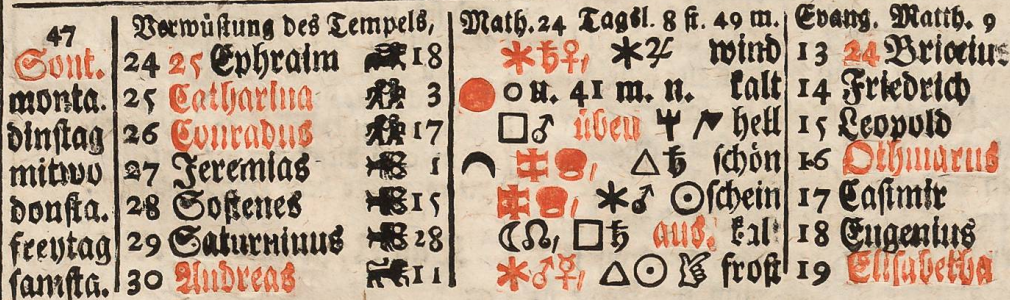 47 Verwüstung des Tempels, Math. 24 Tagsl. 8 st. 49 m. Evang. Matth. 9
Sont. 24 25 Ephraim 18 ✶♄♀, ✶♃ wind 13 24 Briccius
monta. 25 Catharina 3 0 u. 41 m. n. kalt 14 Friedrich
dinstag 26 Conradus 17 □♂ üben hell 15 Leopold
mitwo 27 Jeremias 1 △♄ schön 16 Othmarus
donsta. 28 Sostenes 15 ✶♂ ☉schein 17 Casimir
freytag 29 Saturninus 28 ☾☊, □♄ aus. kal 18 Eugenius
samsta. 30 Andreas 11 ✶♂☿, △☉ frost 19 Elisabetha